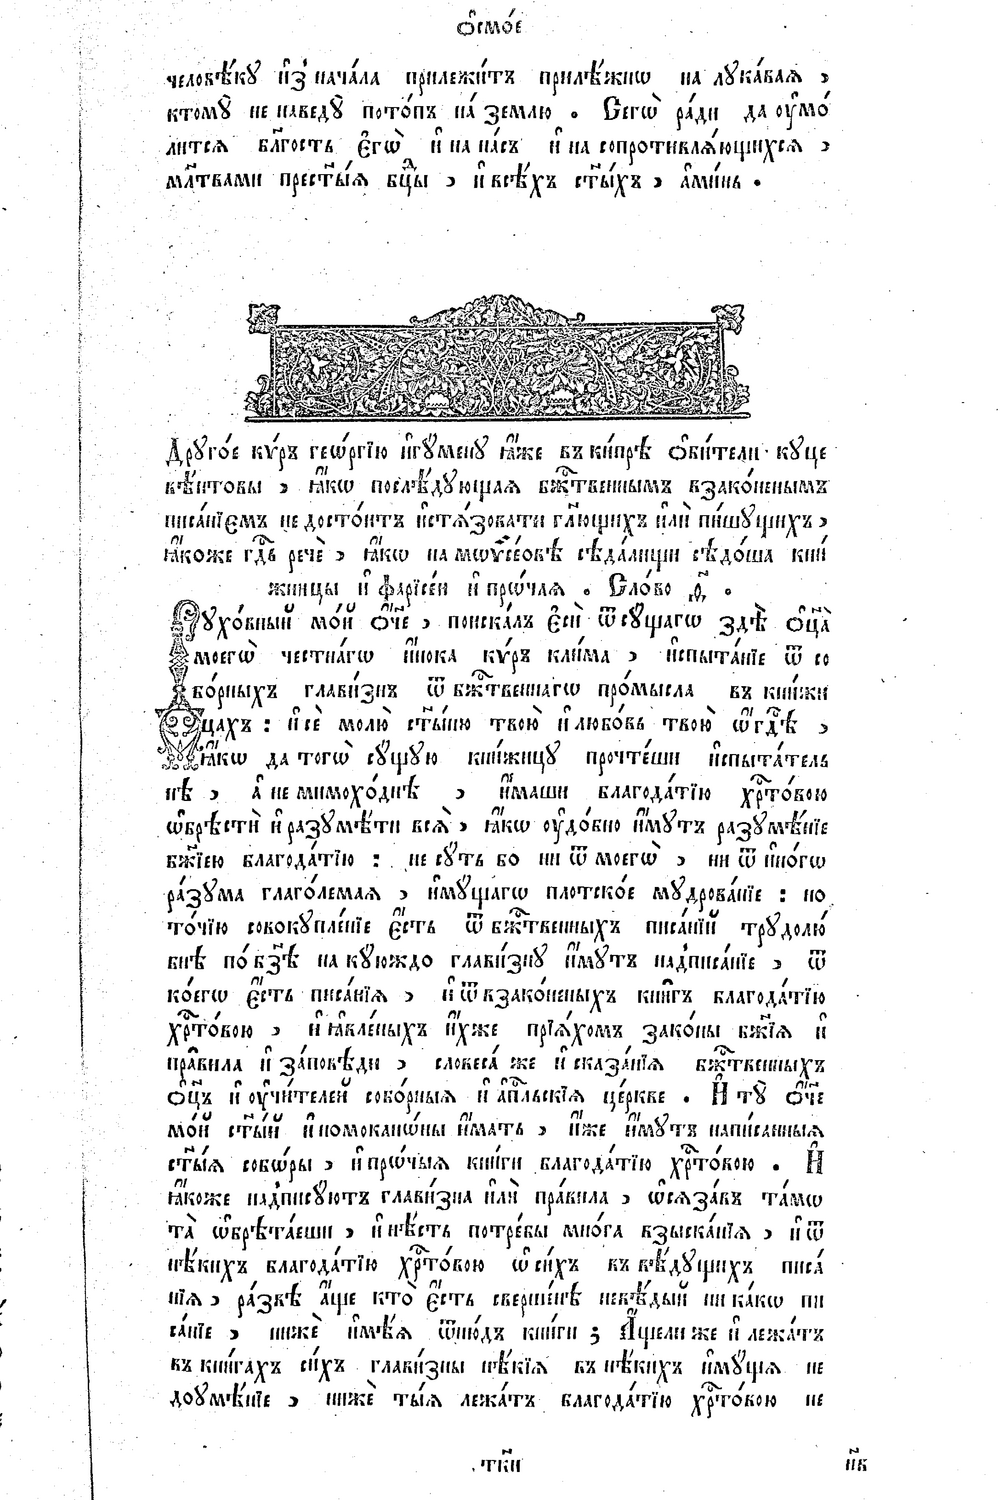 ѻ҆смо́е
человѣ́кꙋ и҆з̾ нача́ла прилежи́тъ прилѣ́жнѡ на лꙋка́ваѧ ,
ктомꙋ̀ не наведꙋ̀ пото́пъ на́ землю . Сегѡ̀ ра́ди да ᲂу҆мо́
литсѧ бл҃гость є҆гѡ̀ и҆ на на́съ и҆ на сопротивлѧ́ющихсѧ ,
мл҃твами прест҃ы́ѧ бц҃ды , и҆ всѣ́хъ ст҃ы́хъ , а҆ми́нь .
Дрꙋго́е кѵ́ръ геѡ́ргїю и҆гꙋ́менꙋ ꙗ҆́же въ ки́прѣ ѻ҆би́тели кꙋце
вѣ́нтовы , ꙗ҆́кѡ послѣ́дꙋющаѧ бж҃твеннымъ взако́ненымъ
писа́нїємъ не досто́итъ и҆стѧ́зовати гл҃ющихъ и҆лѝ пи́шꙋщихъ ,
ꙗ҆́коже гд҇ь речѐ , ꙗ҆́кѡ на мѡѷсе́овѣ сѣда́лищи сѣдо́ша кни́
жницы и҆ фарїсе́и и҆ прѡ́чаѧ . Сло́во д҃ .
Дꙋхо́вный мо́й ѻ҆́ч҃е , поиска́лъ є҆сѝ ѿ сꙋ́щагѡ здѣ̀ ѻ҆ц҃а̀
моегѡ̀ че́стнагѡ и҆́нока кѵ́ръ кли́ма , и҆спыта́нїе ѿ со
бо́рныхъ глави́знъ ѿ бж҃твеннагѡ про́мысла въ кни́жи
цахъ : и҆ сѐ молю̀ ст҃ы́ню твою̀ и҆ любо́вь твою̀ ѡ҆ гд҇ѣ ,
ꙗ҆́кѡ да тогѡ̀ сꙋ́щꙋю кни́жицꙋ прочте́ши и҆спыта́тель
нѣ , а҆ не мимохо́днѣ , и҆́маши благода́тїю хр҇то́вою
ѡ҆брѣстѝ и҆ разꙋмѣ́ти всѧ̀ , ꙗ҆́кѡ ᲂу҆до́бно и҆́мꙋтъ разꙋмѣ́нїе
бж҃їею благода́тїю : не сꙋ́ть бо ни ѿ моегѡ̀ , ни ѿ и҆но́гѡ
ра́зꙋма глаго́лемаѧ , и҆мꙋ́щагѡ плотско́е мꙋдрова́нїе : но
то́чїю совокꙋпле́нїе є҆́сть ѿ бж҃твенныхъ писа́нїй трꙋдолю́
бнѣ по́ взѣ на кꙋ́юждо глави́знꙋ и҆́мꙋтъ надписа́нїе , ѿ
ко́егѡ є҆́сть писа́нїѧ , и҆ ѿ взако́неныхъ кни́гъ благода́тїю
хр҇то́вою , и҆ ꙗ҆вле́ныхъ и҆́хже прїѧ́хомъ зако́ны бж҃їѧ и҆
пра́вила и҆ за́повѣди , словеса́ же и҆ сказа́нїѧ бж҃твенныхъ
ѻ҆ц҃ъ и҆ ᲂу҆чи́телей собо́рныѧ и҆ а҆п҇льскїѧ це́ркве . И҆ тꙋ̀ ѻ҆́ч҃е
мо́й ст҃ы́й и҆ номокано́ны и҆́мать , и҆́же и҆́мꙋтъ напи́санныѧ
ст҃ы́ѧ собѡ́ры , и҆ прѡ́чыѧ кни́ги благода́тїю хр҇то́вою . И҆
ꙗ҆́коже надписꙋ́ютъ глави́зна и҆лѝ пра́вила , ѡ҆сѧза́въ та́мѡ
та̀ ѡ҆брѣта́еши , и҆ нѣ́сть потре́бы мно́га взыска́нїѧ , и҆ ѿ
нѣ́кихъ благода́тїю хр҇то́вою ѡ҆ си́хъ въ вѣ́дꙋщихъ писа́
нїѧ , ра́звѣ а҆́ще кто̀ є҆́сть сверше́нѣ невѣ́дый ни ка́кѡ пи
са́нїе , нижѐ и҆мѣ́ѧ ѿню́дъ кни́ги ; А҆́щели же и҆ лежа́тъ
въ кни́гахъ си́хъ глави́зны нѣ́кїѧ въ нѣ́кихъ и҆мꙋ́щїѧ не
доꙋмѣ́нїе , нижѐ ты́ѧ лежа́тъ благода́тїю хр҇то́вою не
. тк҃и
и҆в